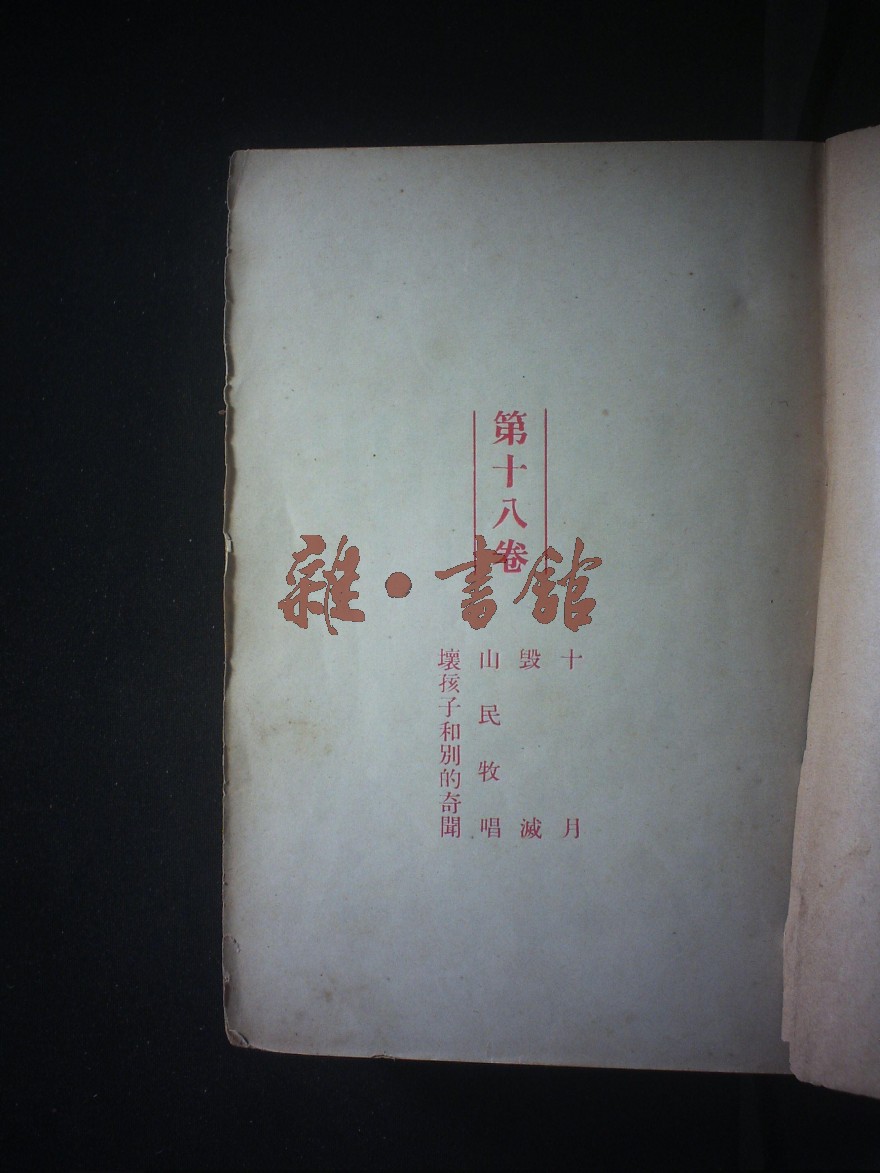 第十八卷
雜·書館
十月
毀滅
山民牧唱
壞孩子和別的奇聞